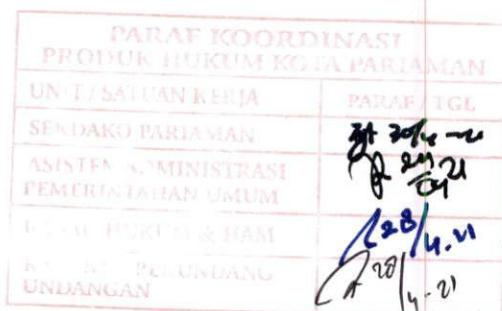 PARAF KOORDINASI
PRODUK HUKUM KOTA PARIAMAN
UNIT / SATUAN KERJA PARAF / TGL
SEKDAKO PARIAMAN
ASISTEN ADMINISTRASI
PEMERINTAHAN UMUM
HUKUM & HAM 28/4.21
PERUNDANG 28/4-21
UNDANGAN